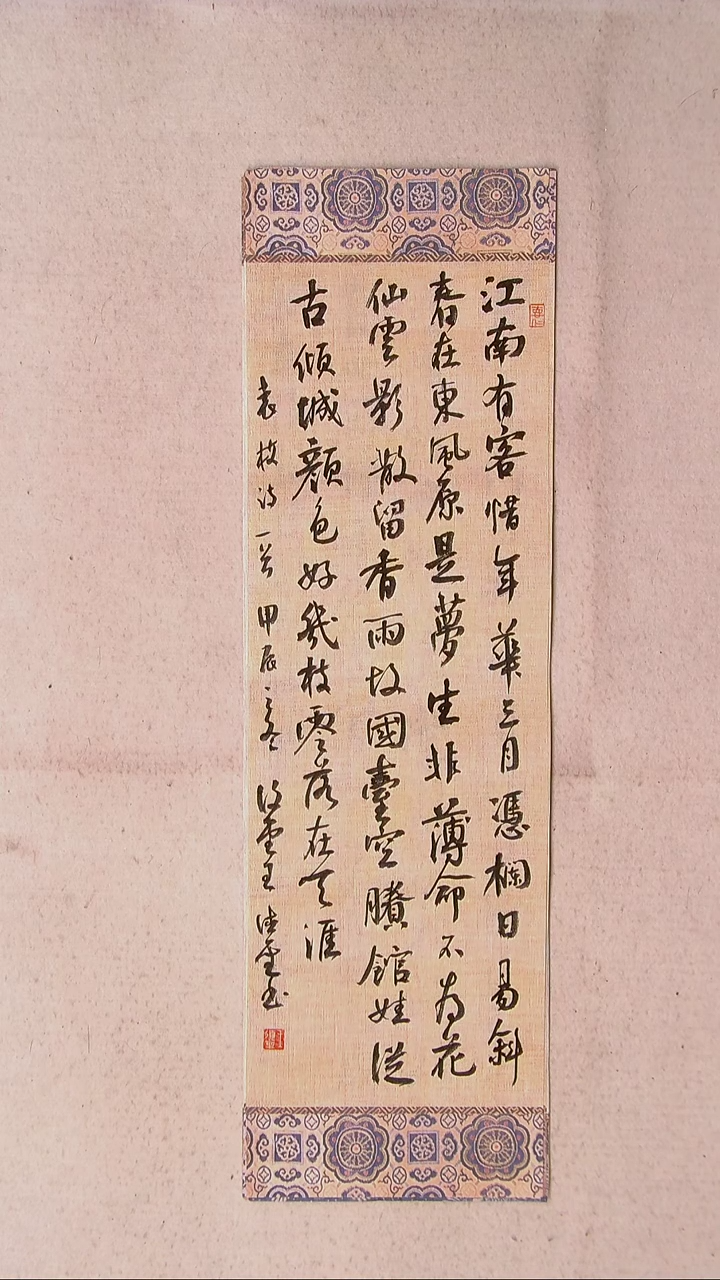 江南有客惜年華三月憑欄日易斜
春在東風原是夢生非薄命不為花
仙雲影散留香雨故國臺空賸館娃從
古傾城顏色好幾枝零落在天涯
袁枚诗一首甲辰之冬